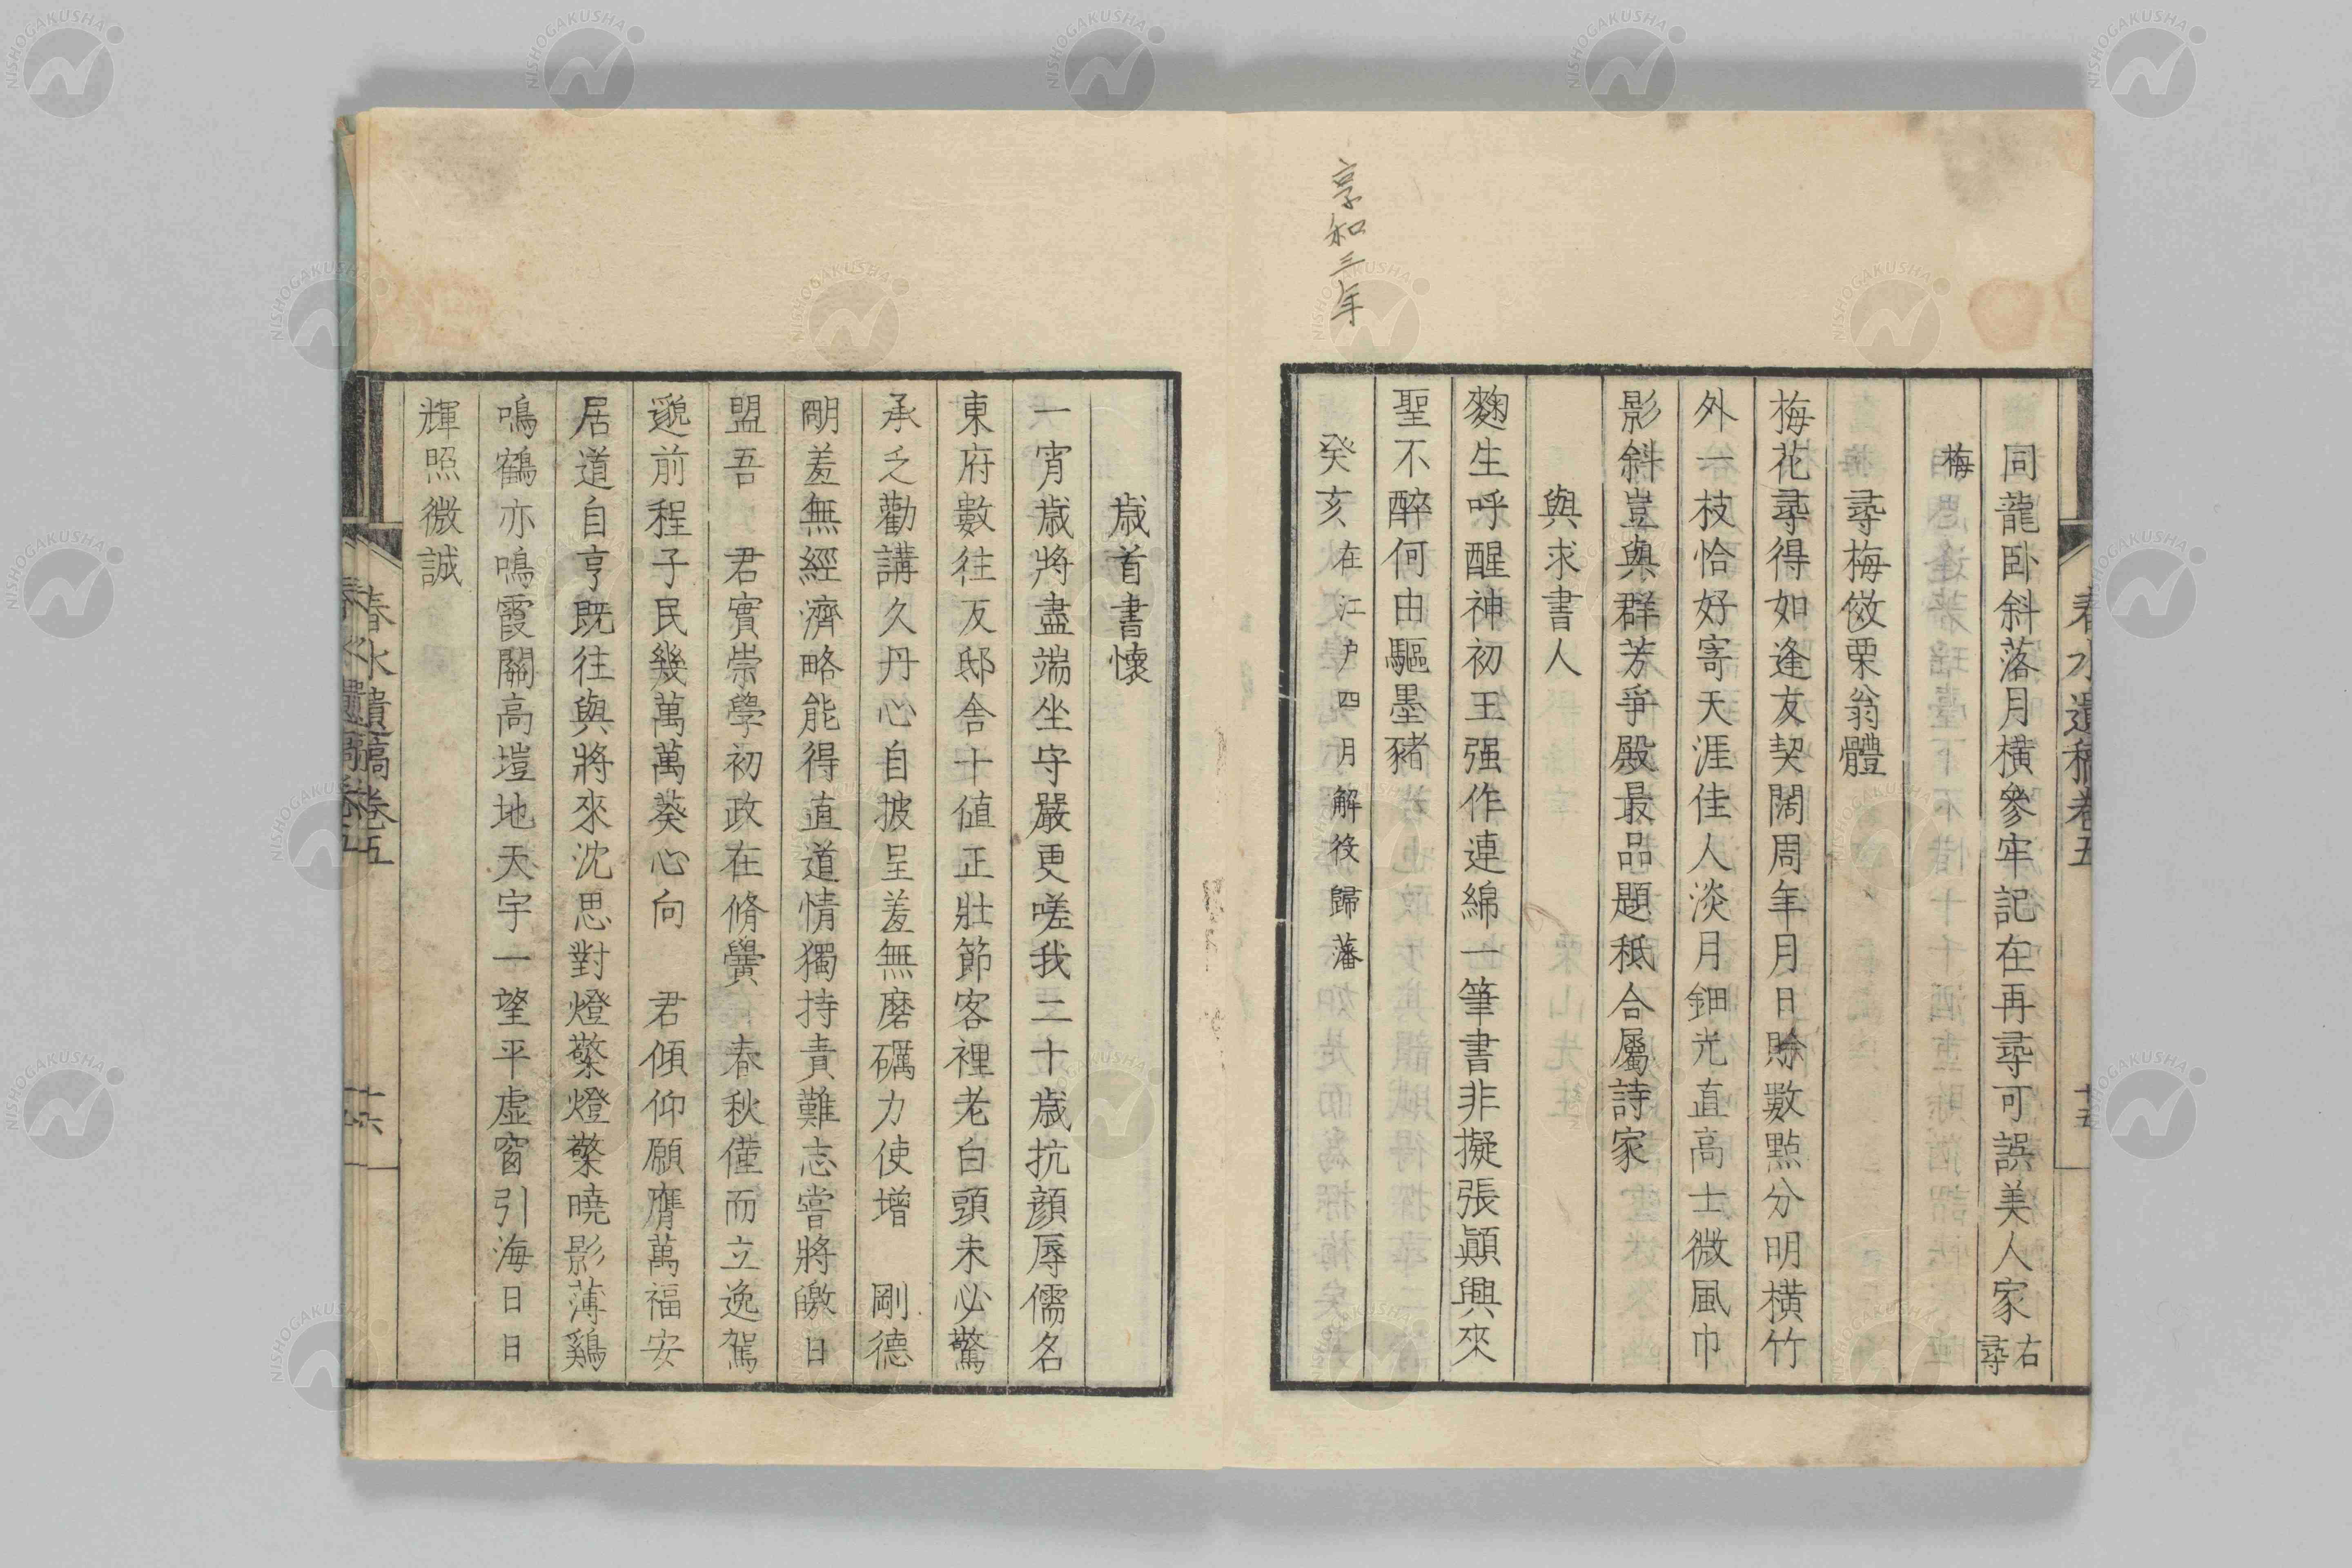 享和三年
春水遺稿卷五
十五
同龍臥斜落月橫參牢記在再尋可誤美人家 右尋
梅
尋梅傚栗翁體
梅花尋得如逢友契闊周年月日賒數點分明橫竹
外一枝恰好寄天涯佳人淡月鈿光直高士微風巾
影斜豈與群芳爭殿最品題秖合屬詩家
與求書人
麴生呼醒神初王强作連綿一筆書非擬張顚興來
聖不醉何由驅墨豬
癸亥 在江戶四月解役歸藩
歲首書懷
一宵歲將盡端坐守嚴更嗟我二十歲抗顏辱儒名
東府數往反邸舍十値正壯節客裡老白頭未必驚
承乏勸講久丹心自披呈羞無磨礪力使增 剛德
明羞無經濟略能得直道情獨持責難志嘗將皦日
盟吾 君實崇學初政在脩黌 春秋僅而立逸駕
邈前程子民幾萬萬葵心向 君傾仰願膺萬福安
居道自亨既往與將來沈思對燈檠燈檠曉影薄鷄
鳴鶴亦鳴霞關高塏地天宇一望平虛窗引海日日
輝照微誠
春水遺稿卷五
十六